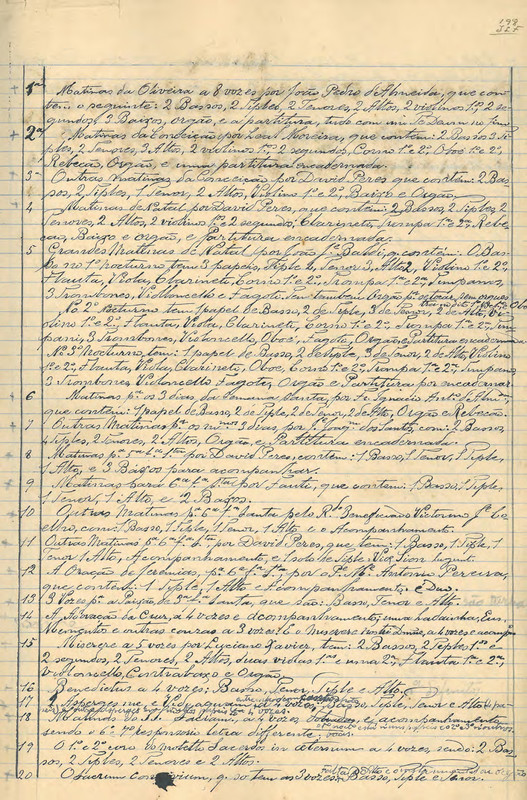 1ª Matinas da Oliveira a 8 vozes por João Pedro d'Almeida, que con-
tem o seguinte: 2 Bassos, 2 Siples, 2 Tenores, 2 Altos, 2 violinos 1ºs 2 se-
gundos, 3 Baixos, orgão, e a partitura, tudo com um
2ª Matinas da Conceição por Leal Moreira, que contem: 2 Bassos 3 Si-
ples, 2 Tenores, 3 Altos, 2 violinos 1ºs 2 segundos, Corno 1º e 2º, Oboé 1º e 2º,
Rebecão, Orgão, e uma partitura encadernada.
3 Outras Matinas da Conceição por David Peres que contem: 2 Bas-
sos, 2 Siples, 1 Tenor, 2 Altos, Violino 1º e 2º, Baixo e Orgão.
4 Matinas de Natal por David Peres, que contem: 2 Bassos, 2 Siples, 2
Tenores, 2 Altos, 2 violinos 1ºs 2 segundos, Clarinete, Trompa 1ª e 2ª, Rebe-
cão, Baixo e orgão, e Partitura encadernada.
5 Grandes Matinas de Natal por João J. Baldi, que contem: O Bas-
so no 1º Nocturno tem 3 papeis, Siple 2, Tenor 3, Alto 2, Violino 1º e 2º,
Flauta, Viola, Clarinete, Corno 1º e 2º, Trompa 1ª e 2ª, Timpanos,
3 Trombones, Violoncello e Fagote.
No 2º Nocturno tem 1 papel de Basso, 2 de Siple, 3 de Tenor, 2 de Alto, Vi-
olino 1º e 2º, Flauta, Viola, Clarinete, Corno 1º e 2º, Trompa 1ª e 2ª, Tim-
pani, 3 Trombones, Violoncello, Oboé, Fagote, Orgão, e Partitura encadernada
No 3º Nocturno, tem: 1 papel de Basso, 2 de Siple, 3 de Tenor, 2 de Alto, Violino
1º e 2º, Flauta, Viola, Clarinete, Oboé, Corno 1º e 2º, Trompa 1ª e 2ª, Timpano,
3 Trombones Violoncello Fagote, Orgão e Partitura por encadernar.
6 Matinas pª os 3 dias, da Semana Santa, por Fr. Ignacio Antº
que contem: 1 papel de Basso, 2 de Siple, 2 de Tenor, 2 de Alto, Orgão e Rebecão.
7 Outras Matinas pª os mesmos 3 dias, por J. Joaqm dos Santos, com: 2 Bassos,
4 Siples, 2 Tenores, 2 Altos, Orgão, e Partitura encadernada.
8 Matinas pª 5ª feira Stª por David Peres, contem: 1 Basso, 1 Tenor, 1 Siple,
1 Alto, e 3 Baixos para acompanhar.
9 Matinas para 6ª fª Stª por Fausto, que contem: 1 Basso, 1 Siple,
1 Tenor, 1 Alto, e 2 Baixos.
10 Outras Matinas pª 6ª fª Santa pelo Rdº Beneficiado Victorino Jé Co-
elho, com: 1 Basso, 1 Siple, 1 Tenor, 1 Alto e o Acompanhamento.
11 Outras Matinas pª 6ª fª Stª por David Peres, que tem: 1 Basso, 1 Siple, 1
Tenor 1 Alto, Acompanhamento, e 1 solo de Siple Vox Sion lugent.
12 A Oração de Jeremias, pª 6ª fª Stª, por o P. M. Antonio Pereira,
que contem: 1 Siple, 1 Alto e acompanhamento. É Duo.
13 3 Vozes pª a Paixão de 3ª fª Santa, que são: Basso, Tenor e Alto.
14 A Adoração da Cruz, a 4 vozes e acompanhamento, uma ladainha,
e outras couzas a 3 vozes. E o Miserere nostri Domine, a 4 vozes e acompto
15 Miserere a 5 vozes por Luciano Xavier, tem: 2 Bassos, 2 Siples 1ºs e
2 segundos, 2 Tenores, 2 Altos, duas violas 1ª e uma 2ª, Flauta 1ª e 2ª,
Violoncello, Contrabaixo e Orgão.
16 Benedictus a 4 vozes: Basso, Tenor, Siple e Alto.
17 Asperges me e Vidi aquam a 4 vozes, Basso, Siple, Tenor e Alto
18 Matinas do a 4 vozes e acompanhamento
sendo o 6º e 7º Responsorio letra differente.
19 O 1º e 2º coro do motetto Sacerdos in æternum a 4 vozes, sendo: 2 Bas-
sos, 2 Siples, 2 Tenores e 2 Altos.
20 O Sacrum Convivium, q. so tem as 3 vozes, Basso, Siple e Tenor.